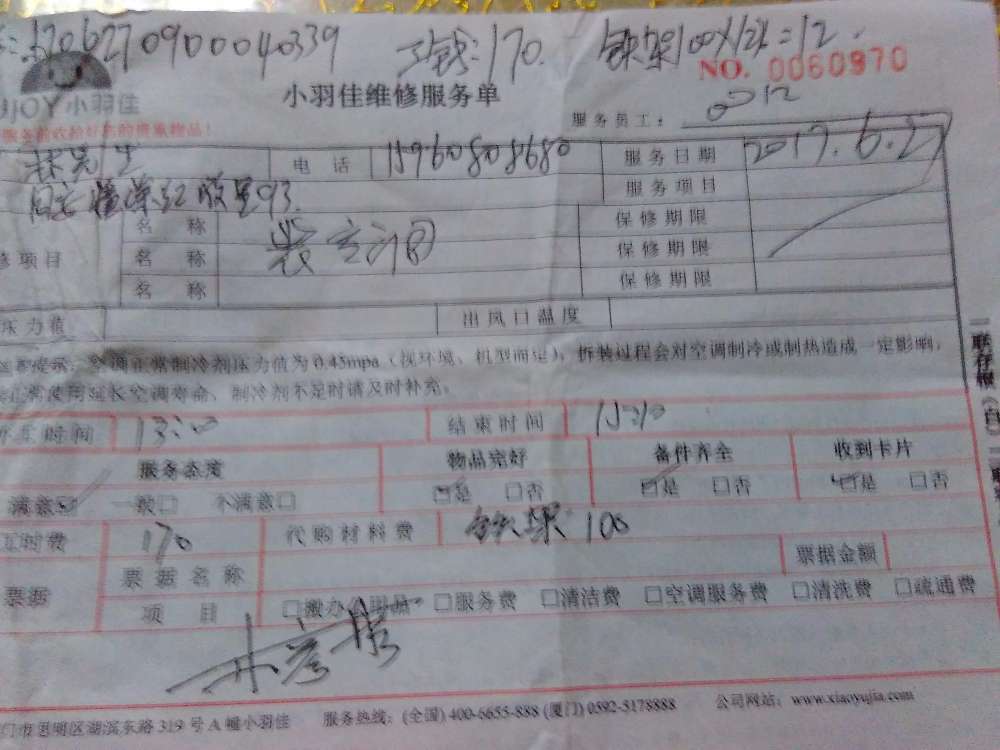 1706270900040339 工钱:170. 铁架100X1次=12.
NO. 0060970
JOY 小羽佳 小羽佳维修服务单 服务员工: 0012
林先生 电 话 15960808680 服务日期 2017.6.27
服务项目
名 称 保修期限
修项目 名 称 保修期限
名 称 保修期限
压力值 出风口温度
空调正常制冷剂压力值为0.45mpa(视环境、机型而定),拆装过程会对空调制冷或制热造成一定影响,
正常使用延长空调寿命,制冷剂不足时请及时补充。
时间 13:10 结束时间 15:10
服务态度 物品完好 备件齐全 收到卡片
满意☑ 一般□ 不满意□ ☑是 □否 ☑是 □否 ☑是 □否
工时费 170 代购材料费 铁架 100
票据 票据名称 票据金额
项 目 □搬办公用品 □服务费 □清洁费 □空调服务费 □清洗费 □疏通费
门市思明区湖滨东路319号A幢小羽佳 服务热线:(全国) 400-6655-888 (厦门) 0592-5178888 公司网站:www.xiaoyujia.com
一联存根(白)